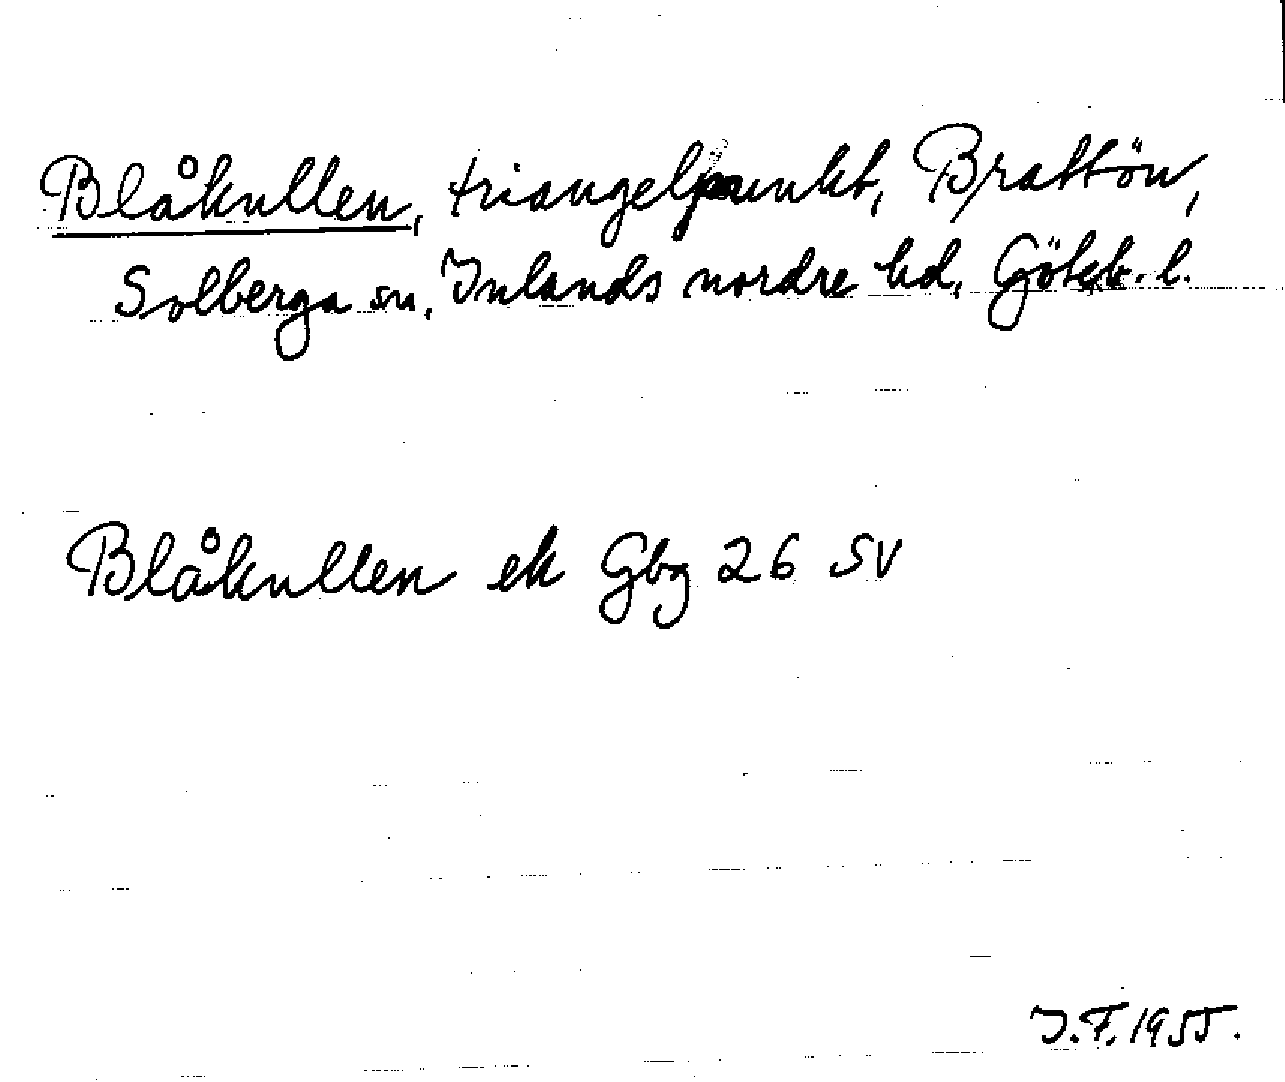 Blåkullen, triangelpunkt, Brattön,
Solberga sn, Inlands nordre hd, Götebs. l.
Blåkullen ek Gbg 26 SV
J.F. 1955.